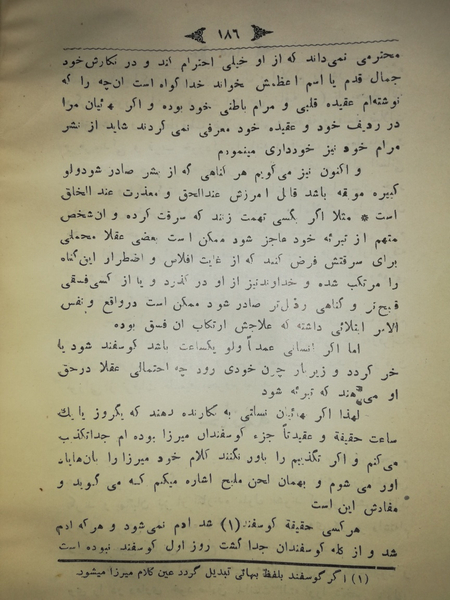 ۱۸۶
محترمی نمی‌داند که از او خیلی احترام کند و در نگارش خود
جمال قدم یا اسم اعظمش بخواند خدا گواه است آنچه را که
نوشته‌ام عقیده قلبی و مرام باطنی خود بوده و اگر بهائیان مرا
در ردیف خود و عقیده خود معرفی نمی کردند شاید از نشر
مرام خود نیز خودداری مینمودم
و اکنون نیز می‌گویم هر گناهی که از بشر صادر شود ولو
کبیره موبقه باشد قابل آمرزش عندالحق و معذرت عند الخلق
است * مثلا اگر بکسی تهمت زنند که سرقت کرده و آن شخص
متهم از تبرئه خود عاجز شود ممکن است بعضی عقلا محملی
برای سرقتش فرض کنند که از غایت افلاس و اضطرار این گناه
را مرتکب شده و خداوند نیز از او در گذرد و یا از کسی فسقی
قبیح‌تر و گناهی رذل‌تر صادر شود ممکن است در واقع و نفس
الامر ابتلائی داشته که علاجش ارتکاب آن فسق بوده
اما اگر انسانی عمداً ولو یکساعت باشد گوسفند شود یا
خر گردد و زیر بار چون خودی رود چه احتمالی عقلا در حق
او می‌دهند که تبرئه شود
لهذا اگر بهائیان نسبتی به نگارنده دهند که یکروز یا یك
ساعت حقیقة و عقیدتاً جزء گوسفندان میرزا بوده ام جداً تکذیب
می‌کنم و اگر تکذیبم را باور نکنند کلام خود میرزا را بآنها یاد
آور می شوم و بهمان لحن ملیح اشاره میکنم که می گوید و
مفادش این است
هر کسی حقیقة گوسفند (۱) شد آدم نمی‌شود و هر که آدم
شد و از گله گوسفندان جدا گشت روز اول گوسفند نبوده است
(۱) اگر گوسفند بلفظ بهائی تبدیل گردد عین کلام میرزا میشود.